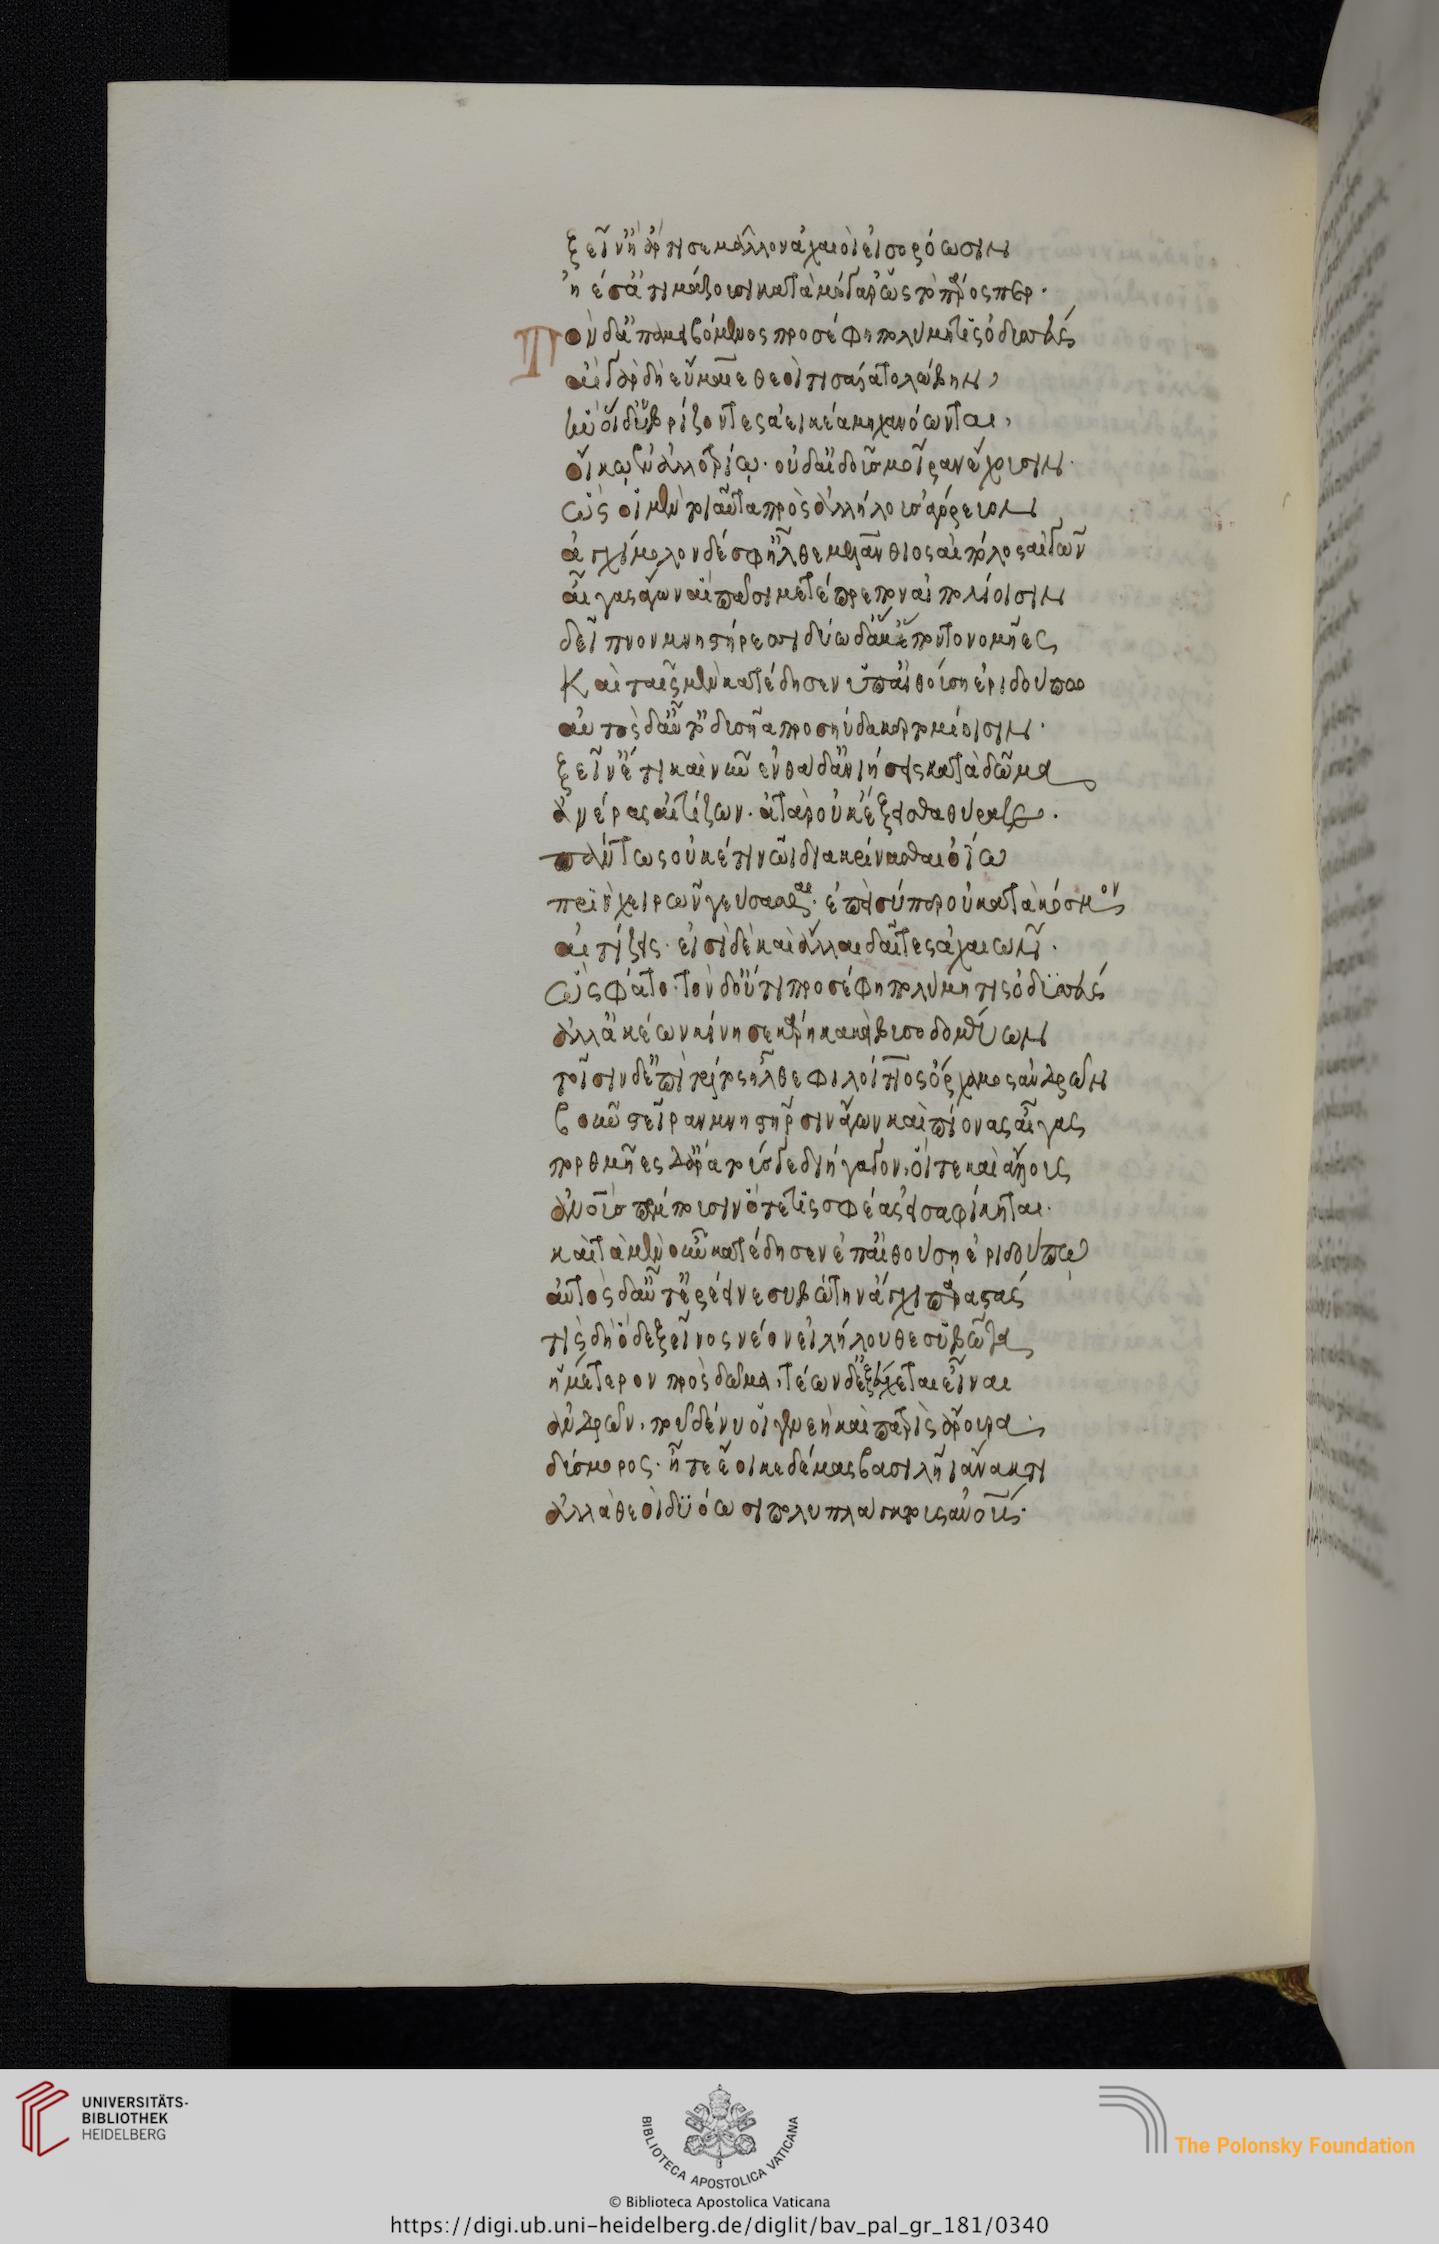 ξεῖν' ἦ ἄρ τί σε μᾶλλον ἀχαιοὶ εἰσορόωσιν
ἠέ σ' ἀτιμάζουσι κατὰ μέγαρ' ὡς τὸ πάρος περ·
Τὸν δ' ἀπαμειβόμενος προσέφη πολύμητις ὀδυσσεύς
αἲ γὰρ δὴ εὔμαιε θεοὶ τισαίατο λώβην,
ἣν οἵδ' ὑβρίζοντες ἀεικέα μηχανόωνται,
οἴκω ἐν ἀλλοτρίω· οὐδ' αἰδοῦς μοῖραν ἔχουσιν·
ὣς οἱ μὲν τοιαῦτα πρὸς ἀλλήλους ἀγόρευον
ἀγχίμολον δέ σφ' ἦλθε μελάνθιος αἰπόλος αἰγῶν
αἶγας ἄγων αἳ πᾶσι μετέπρεπον αἰπολίοισιν
δεῖπνον μνηστήρεσσι δύω δ' ἅμ' ἕποντο νομῆες
Καὶ τὰς μὲν κατέδησεν ὑπ' αἰθούση ἐριδούπω
αὐτὸς δ' αὖτ' ὀδυσῆα προσηύδα κερτομίοισιν·
ξεῖν' ἔτι καὶ νῦν ἐνθάδ' ἀνιήσεις κατὰ δῶμα
ἀνέρας αἰτίζων· ἀτὰρ οὐκ ἔξεισθα θύραζε·
πάντως οὐκέτι νῶϊ διακρίνεσθαι ὀΐω
πρὶν χειρῶν γεύσασθαι· ἐπεὶ σύ περ οὐ κατὰ κόσμον
αἰτίζεις· εἰσὶ δὲ καὶ ἄλλαι δαῖτες ἀχαιῶν·
ὣς φάτο· τὸν δ' οὔτι προσέφη πολύμητις ὀδυσσεύς
ἀλλ' ἀκέων κίνησε κάρη κακὰ βυσσοδομεύων
τοῖσι δ' ἐπὶ τρίτος ἦλθε φιλοίτιος ὄρχαμος ἀνδρῶν
βοῦν στεῖραν μνηστῆρσιν ἄγων καὶ πίονας αἶγας
πορθμῆες δ' ἄρα τούσδε διήγαγον, οἵ τε καὶ ἄλλους
ἀνους πέμπουσιν ὅτε τίς σφέας εἰσαφίκηται·
καὶ τὰ μὲν οὖν κατέδησεν ἐπ' αἰθούση ἐριδούπω
αὐτὸς δ' αὖτ' ἐρέεινε συβώτην ἄγχι παραστάς
τίς δὴ ὅδε ξεῖνος νέον εἰλήλουθε συβῶτα
ἡμέτερον πρὸς δῶμα, τέων δ' ἐξεύχεται εἶναι
ἀνδρῶν, ποῦ δέ νυ οἱ γενεὴ καὶ πατρὶς ἄρουρα·
δύσμορος· ἦ τε ἔοικε δέμας βασιλῆϊ ἄνακτι
ἀλλὰ θεοὶ δυόωσι πολυπλάγκτους ἀνους·
UNIVERSITÄTS-
BIBLIOTHEK
HEIDELBERG
BIBLIOTECA APOSTOLICA VATICANA
The Polonsky Foundation
© Biblioteca Apostolica Vaticana
https://digi.ub.uni-heidelberg.de/diglit/bav_pal_gr_181/0340